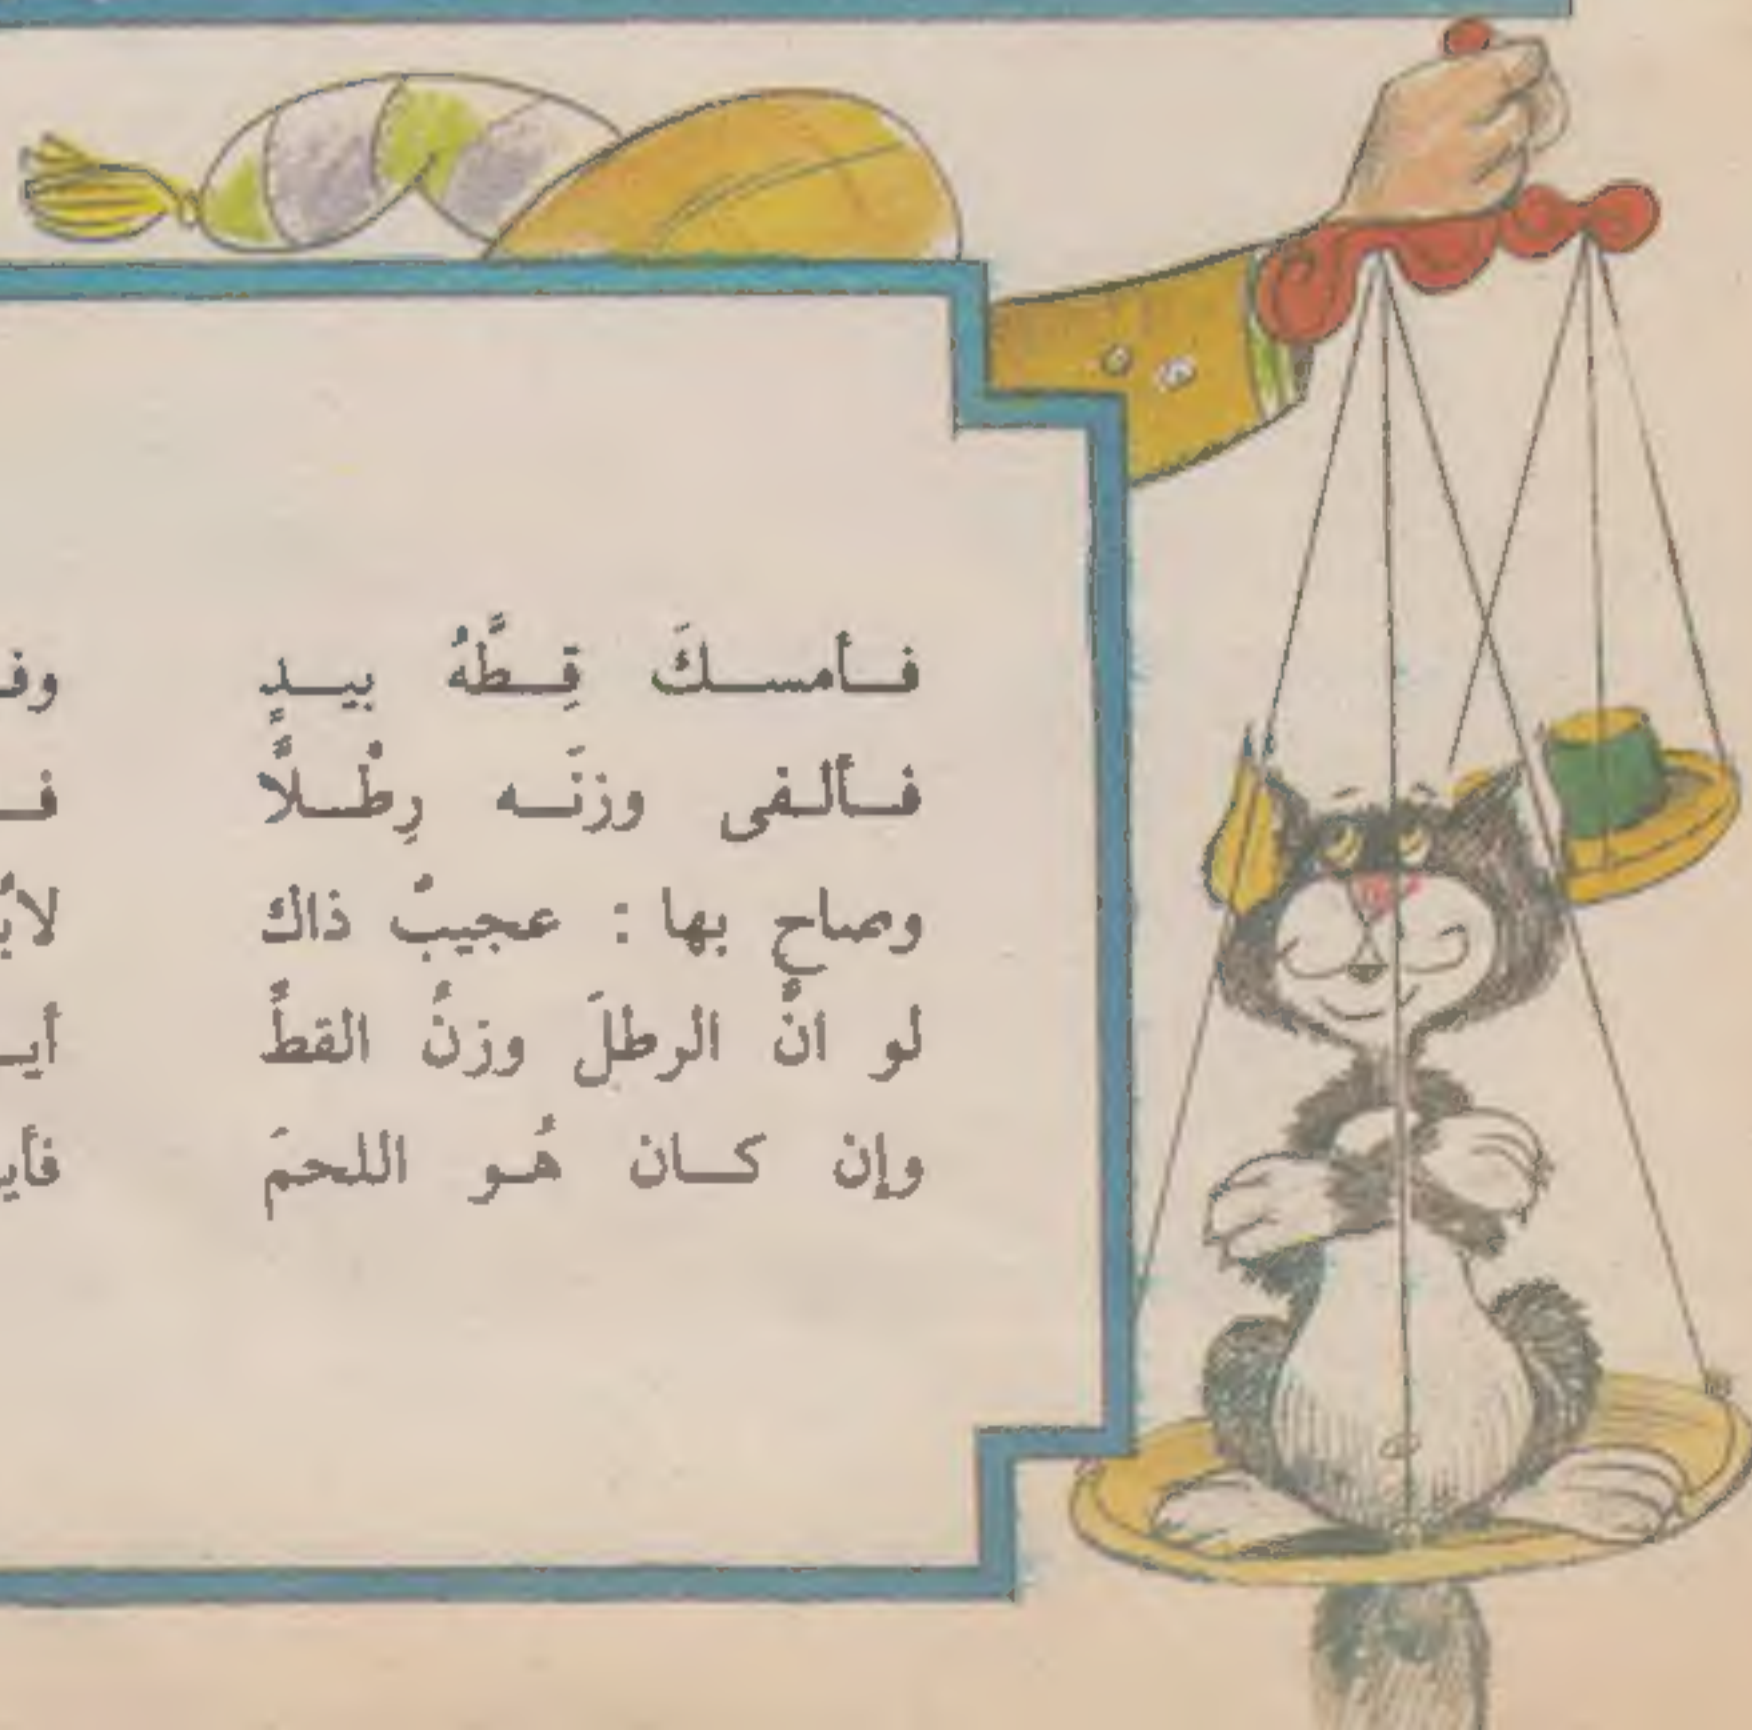 فأمسكَ قِطَّهُ بيدٍ
فألفى وزنَه رِطْلاً
وصاح بها : عجيبٌ ذاك
لو انَّ الرطلَ وزنُ القطِّ
وإن كان هُو اللحمَ